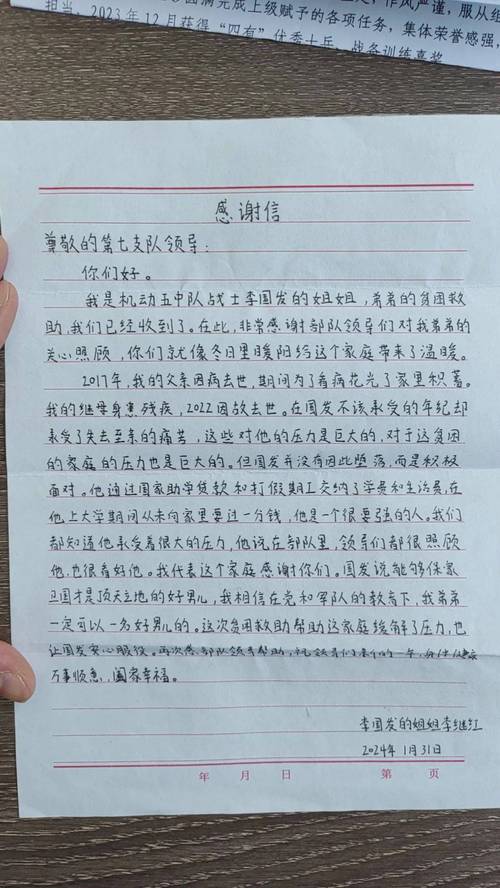 圆满完成上级赋予的各项任务，集体荣誉感强，
担当，2023年12月获得“四有”优秀士兵、战备训练嘉奖
感谢信
尊敬的第七支队领导：
你们好。
我是机动五中队战士李国发的姐姐，弟弟的贫困救
助，我们已经收到了。在此，非常感谢部队领导们对我弟弟的
关心照顾，你们就像冬日里暖阳给这个家庭带来了温暖。
2017年，我的父亲因病去世，期间为了看病花光了家里积蓄。
我的继母身患残疾，2022因故去世。在国发不该承受的年纪却
承受了失去至亲的痛苦，这些对他的压力是巨大的，对于这贫困
的家庭的压力也是巨大的。但国发并没有因此堕落，而是积极
面对。他通过国家助学贷款和打假期工交纳了学费和生活费，在
他上大学期间从未向家里要过一分钱，他是个很要强的人。我们
都知道他承受着很大的压力，他说在部队里，领导们都很照顾
他，也很看好他。我代表这个家庭感谢你们。国发说能够保家
卫国才是顶天立地的好男儿，我相信在党和军队的教育下，我弟弟
一定可以一名好男儿的。这次贫困救助帮助这家庭缓解了压力，也
让国发安心服役。再次感部队领导帮助，祝领导们来的一年，身体健康
万事顺意，阖家幸福。
李国发的姐姐李继红
2024年1月31日
年 月 日 第 页